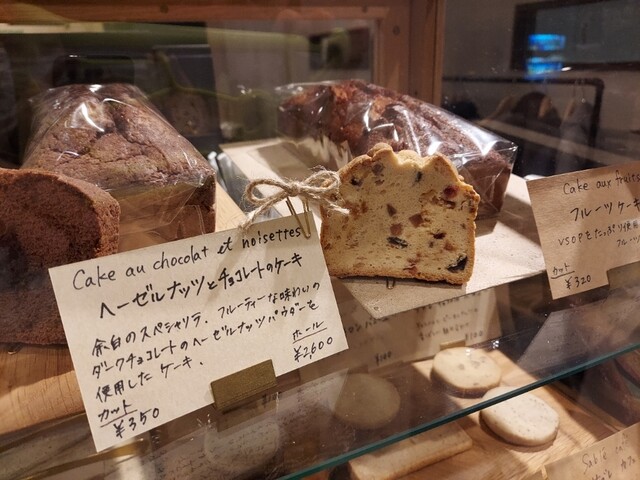 Cake au chocolat et noisettes
ヘーゼルナッツとチョコレートのケーキ
余白のスペシャリテ、フルーティーな味わいの
ダークチョコレートのヘーゼルナッツパウダーを
使用したケーキ。
カット
¥350
ホール
¥2,600
Cake aux fruits
フルーツケーキ
VSOPをたっぷり使用
フルーツ
カット
¥320
Sablé